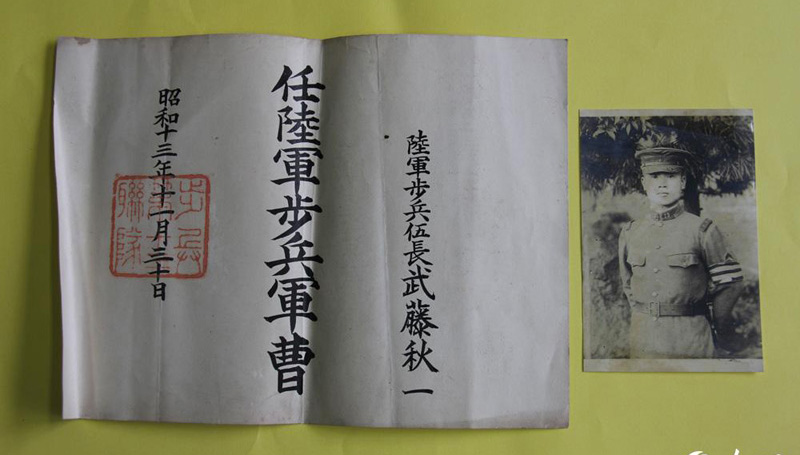 陸軍歩兵伍長武藤秋一
任陸軍歩兵軍曹
昭和十三年十一月三十日
歩兵
聯隊